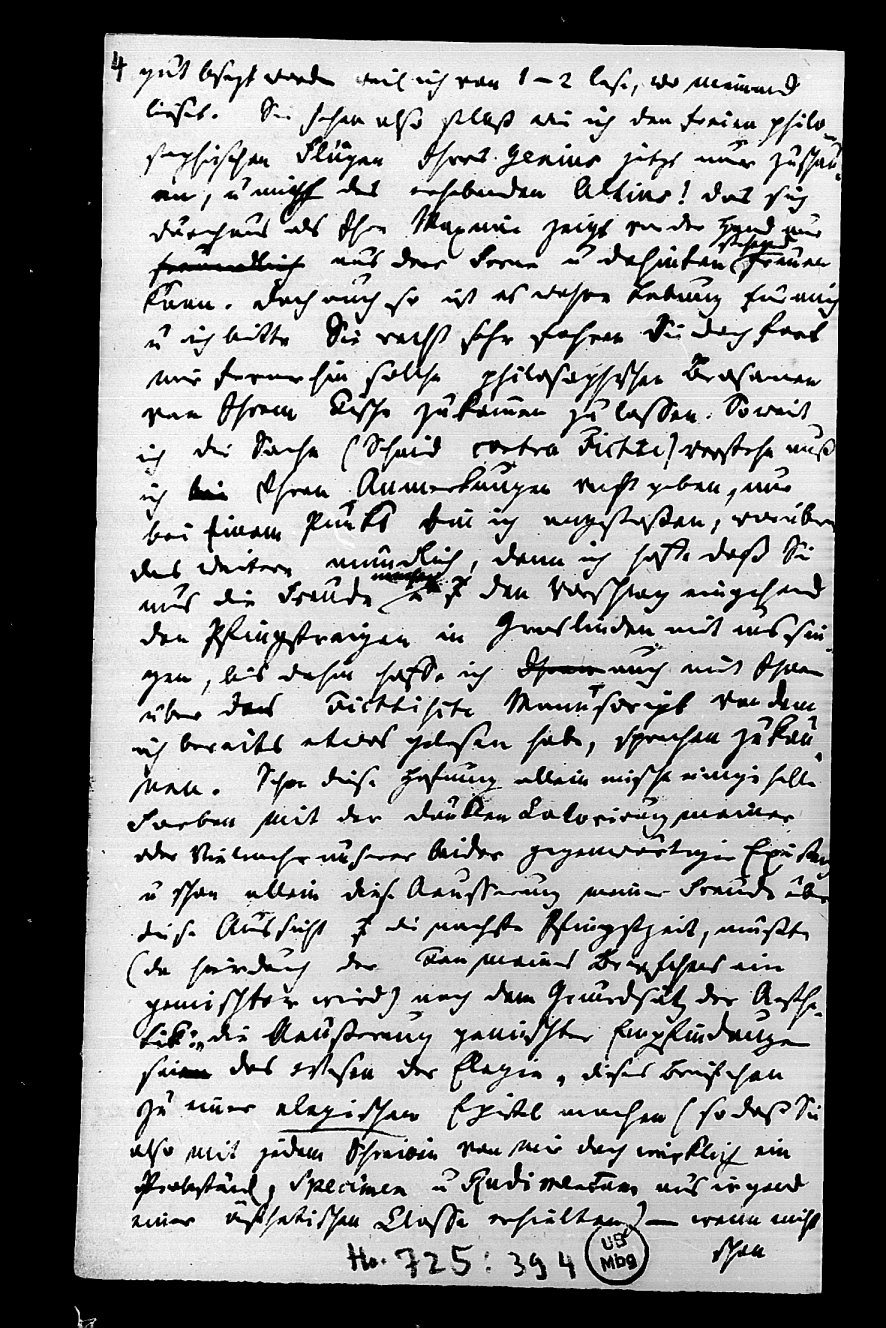 4 gut besezt werden weil ich von 1–2 lese, wo niemand
lieset. Sie sehen also selbst wie ich den freien philo-
sophischen Flügen Ihres Genius jetzt nur zuschau-
en, u mich des erhebenden Altius! das sich
durchaus als Ihre Maxime zeigt von der Hand nur
freundlich aus der Ferne u dahinten stehend freuen
kann. Doch auch so ist es wahre Labung für mich
u ich bitte Sie recht sehr fahren Sie doch fort
mir fernerhin solche philosophischen Brosamen
von Ihrem Tische zukommen zu lassen. Soweit
ich die Sache (Schmid contra Fichte) verstehe muß
ich bei Ihren Anmerkungen recht geben, nur
bei Einem Punkt bin ich angestoßen, worüber
das weitere mündlich, denn ich hoffe daß Sie
uns die Freude machen u den Vorschlag eingehend
den Pfingstreigen in Graslinden mit uns sin-
gen, bis dahin hoffe ich Ihnen auch mit Ihnen
über das Fichtische Manuscript von dem
ich bereits etwas gelesen habe, sprechen zu kön-
nen. Schon diese Hofnung allein mischt einige helle
Farben mit der dunklen Colorirung meiner
oder vielmehr unserer beider gegenwärtigen Existenz
u schon allein diese Aeusserung meiner Freude über
diese Aussicht die nächste Pfingstzeit, müßte
(da hierdurch der Ton meines Briefchens ein
gemischter wird) nach dem Grundsatz der Aesthe-
tik: „die Aeußerung gemischter Empfindungen
seien das Wesen der Elegie„ dieses Briefchen
zu einer elegischen Epistel machen (so daß Sie
also mit jedem Schreiben von mir doch wirklich ein
Probestück, Specimen u Rudimentum aus irgend
einer ästhetischen Classe erhielten) — wenn nicht
schon
Hs. 725:394
UB
Mbg